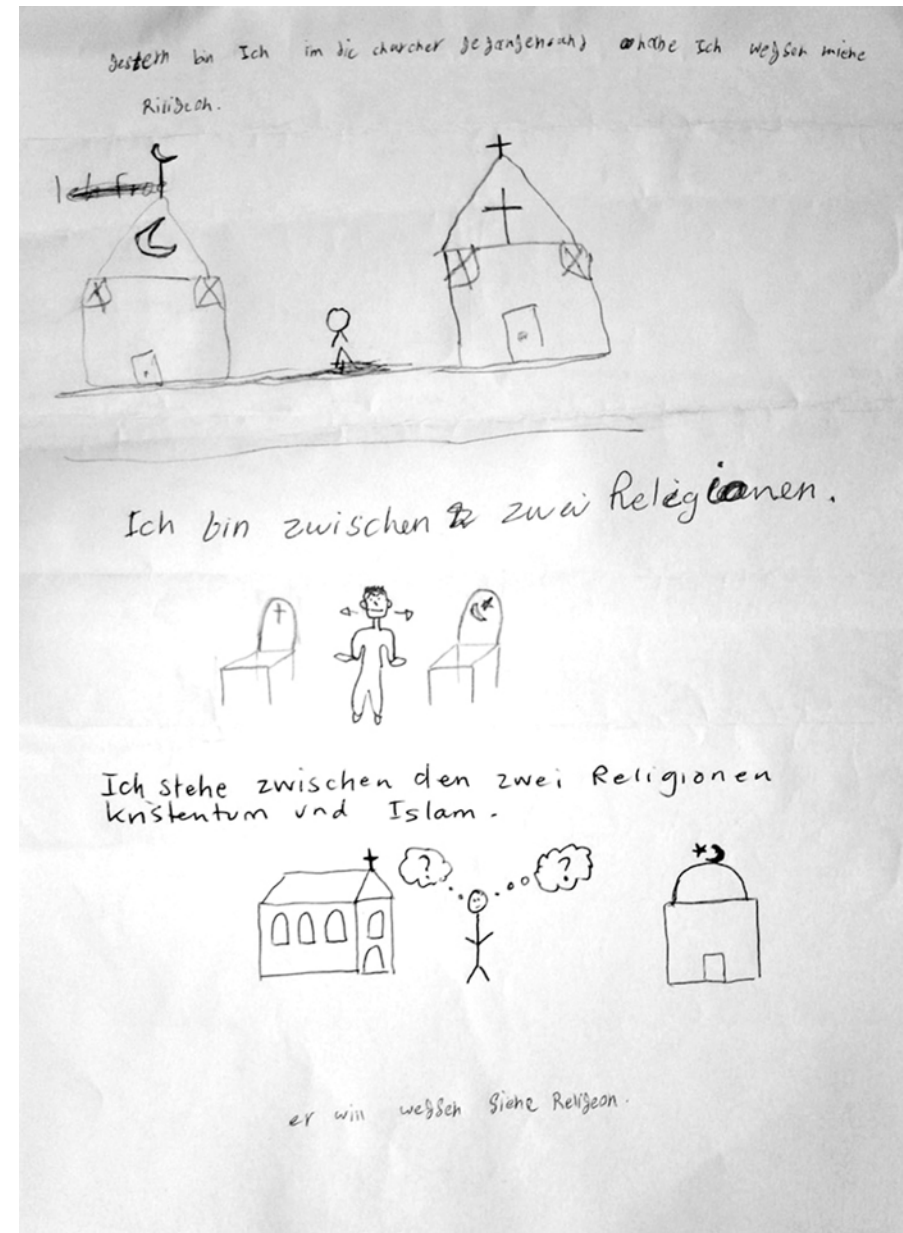 gestern bin Ich im die charcher gegangen und habe Ich wegsen miene
Riligeon.
Ich bin zwischen zwei Religionen.
? ?
Ich stehe zwischen den zwei Religionen
Kristentum und Islam.
er will wegsen siene Religeon.